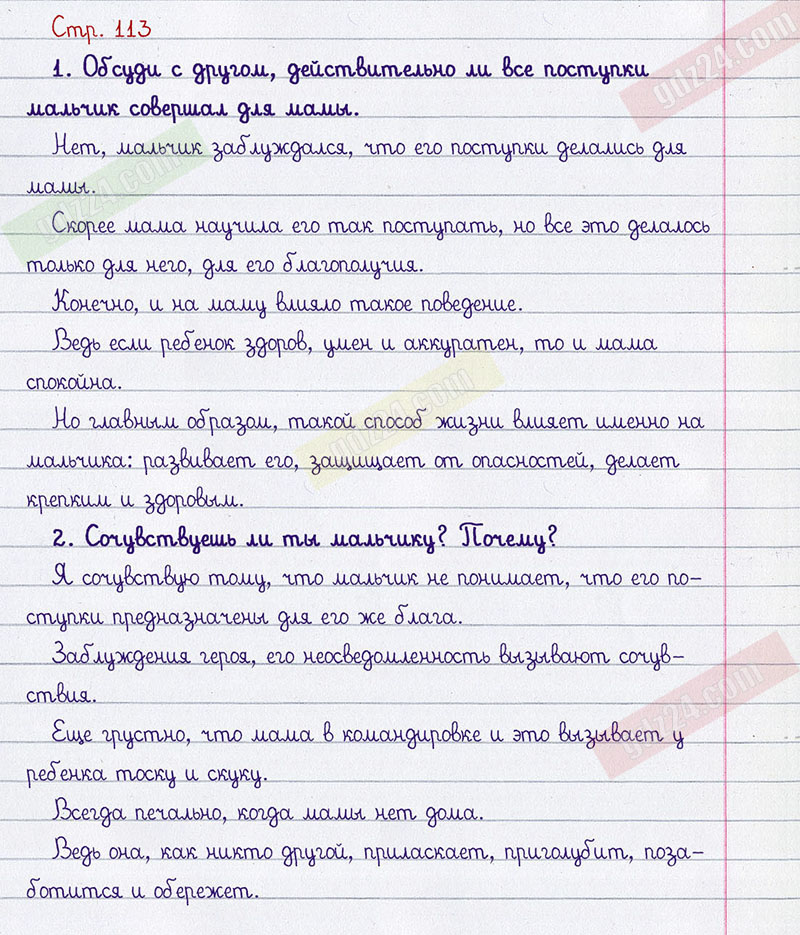 Стр. 113
1. Обсуди с другом, действительно ли все поступки
мальчик совершал для мамы.
Нет, мальчик заблуждался, что его поступки делались для
мамы.
Скорее мама научила его так поступать, но все это делалось
только для него, для его благополучия.
Конечно, и на маму влияло такое поведение.
Ведь если ребенок здоров, умен и аккуратен, то и мама
спокойна.
Но главным образом, такой способ жизни влияет именно на
мальчика: развивает его, защищает от опасностей, делает
крепким и здоровым.
2. Сочувствуешь ли ты мальчику? Почему?
Я сочувствую тому, что мальчик не понимает, что его по-
ступки предназначены для его же блага.
Заблуждения героя, его неосведомленность вызывают сочув-
ствия.
Еще грустно, что мама в командировке и это вызывает у
ребенка тоску и скуку.
Всегда печально, когда мамы нет дома.
Ведь она, как никто другой, приласкает, приголубит, поза-
ботится и обережет.
gdz24.com
gdz24.com
gdz24.com
gdz24.com